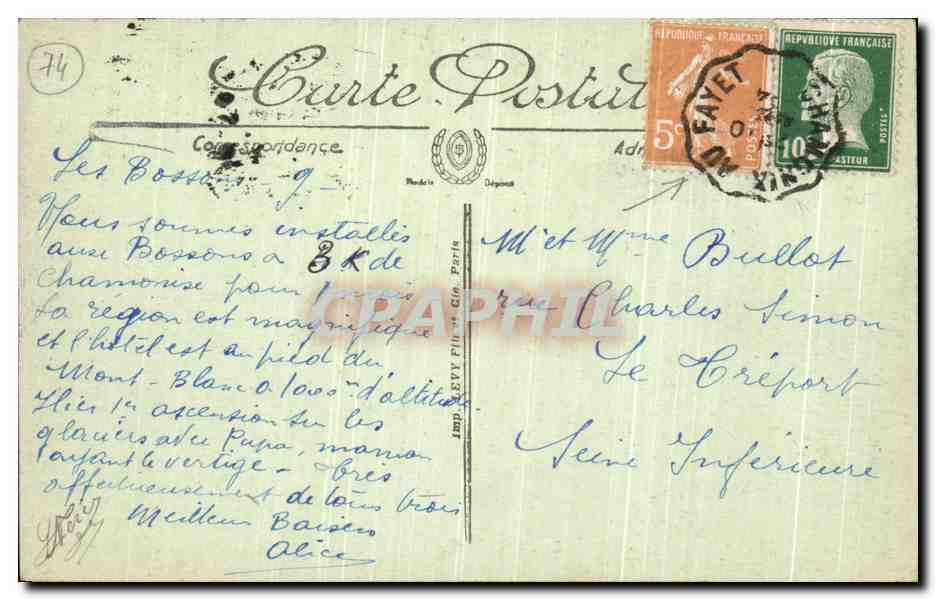 74
Carte Postale
Correspondance
Les Bossons 9
Nous sommes installés
aux Bossons à 3 K de
Chamonix pour 1 mois
La région est magnifique
et l'hôtel est au pied du
Mont-Blanc à d'altitude.
Hier 1re ascension sur les
glaciers avec Papa, maman
ayant le vertige - très
affectueusement de tous trois
Meilleurs Baisers
Alice
Modèle Déposé
Imp. LEVY Fils et Cie, Paris
REPUBLIQUE FRANÇAISE
5c
POSTES
REPVBLIQVE FRANÇAISE
10
POSTES
PASTEUR
CHAMONIX AU FAYET
Mr et Mme Bullot
rue Charles Simon
Le Tréport
Seine Inférieure
CRAPHIL